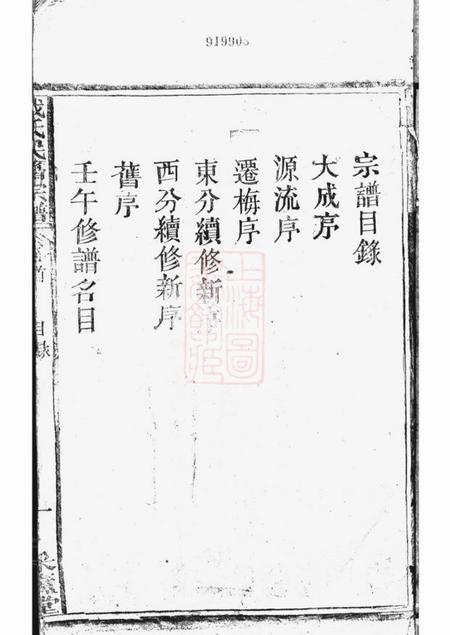 919903
宗譜目錄
大成序
源流序
遷梅序
東分續修新序
西分續修新序
舊序
壬午修譜名目
宗譜
目錄
一
上海圖